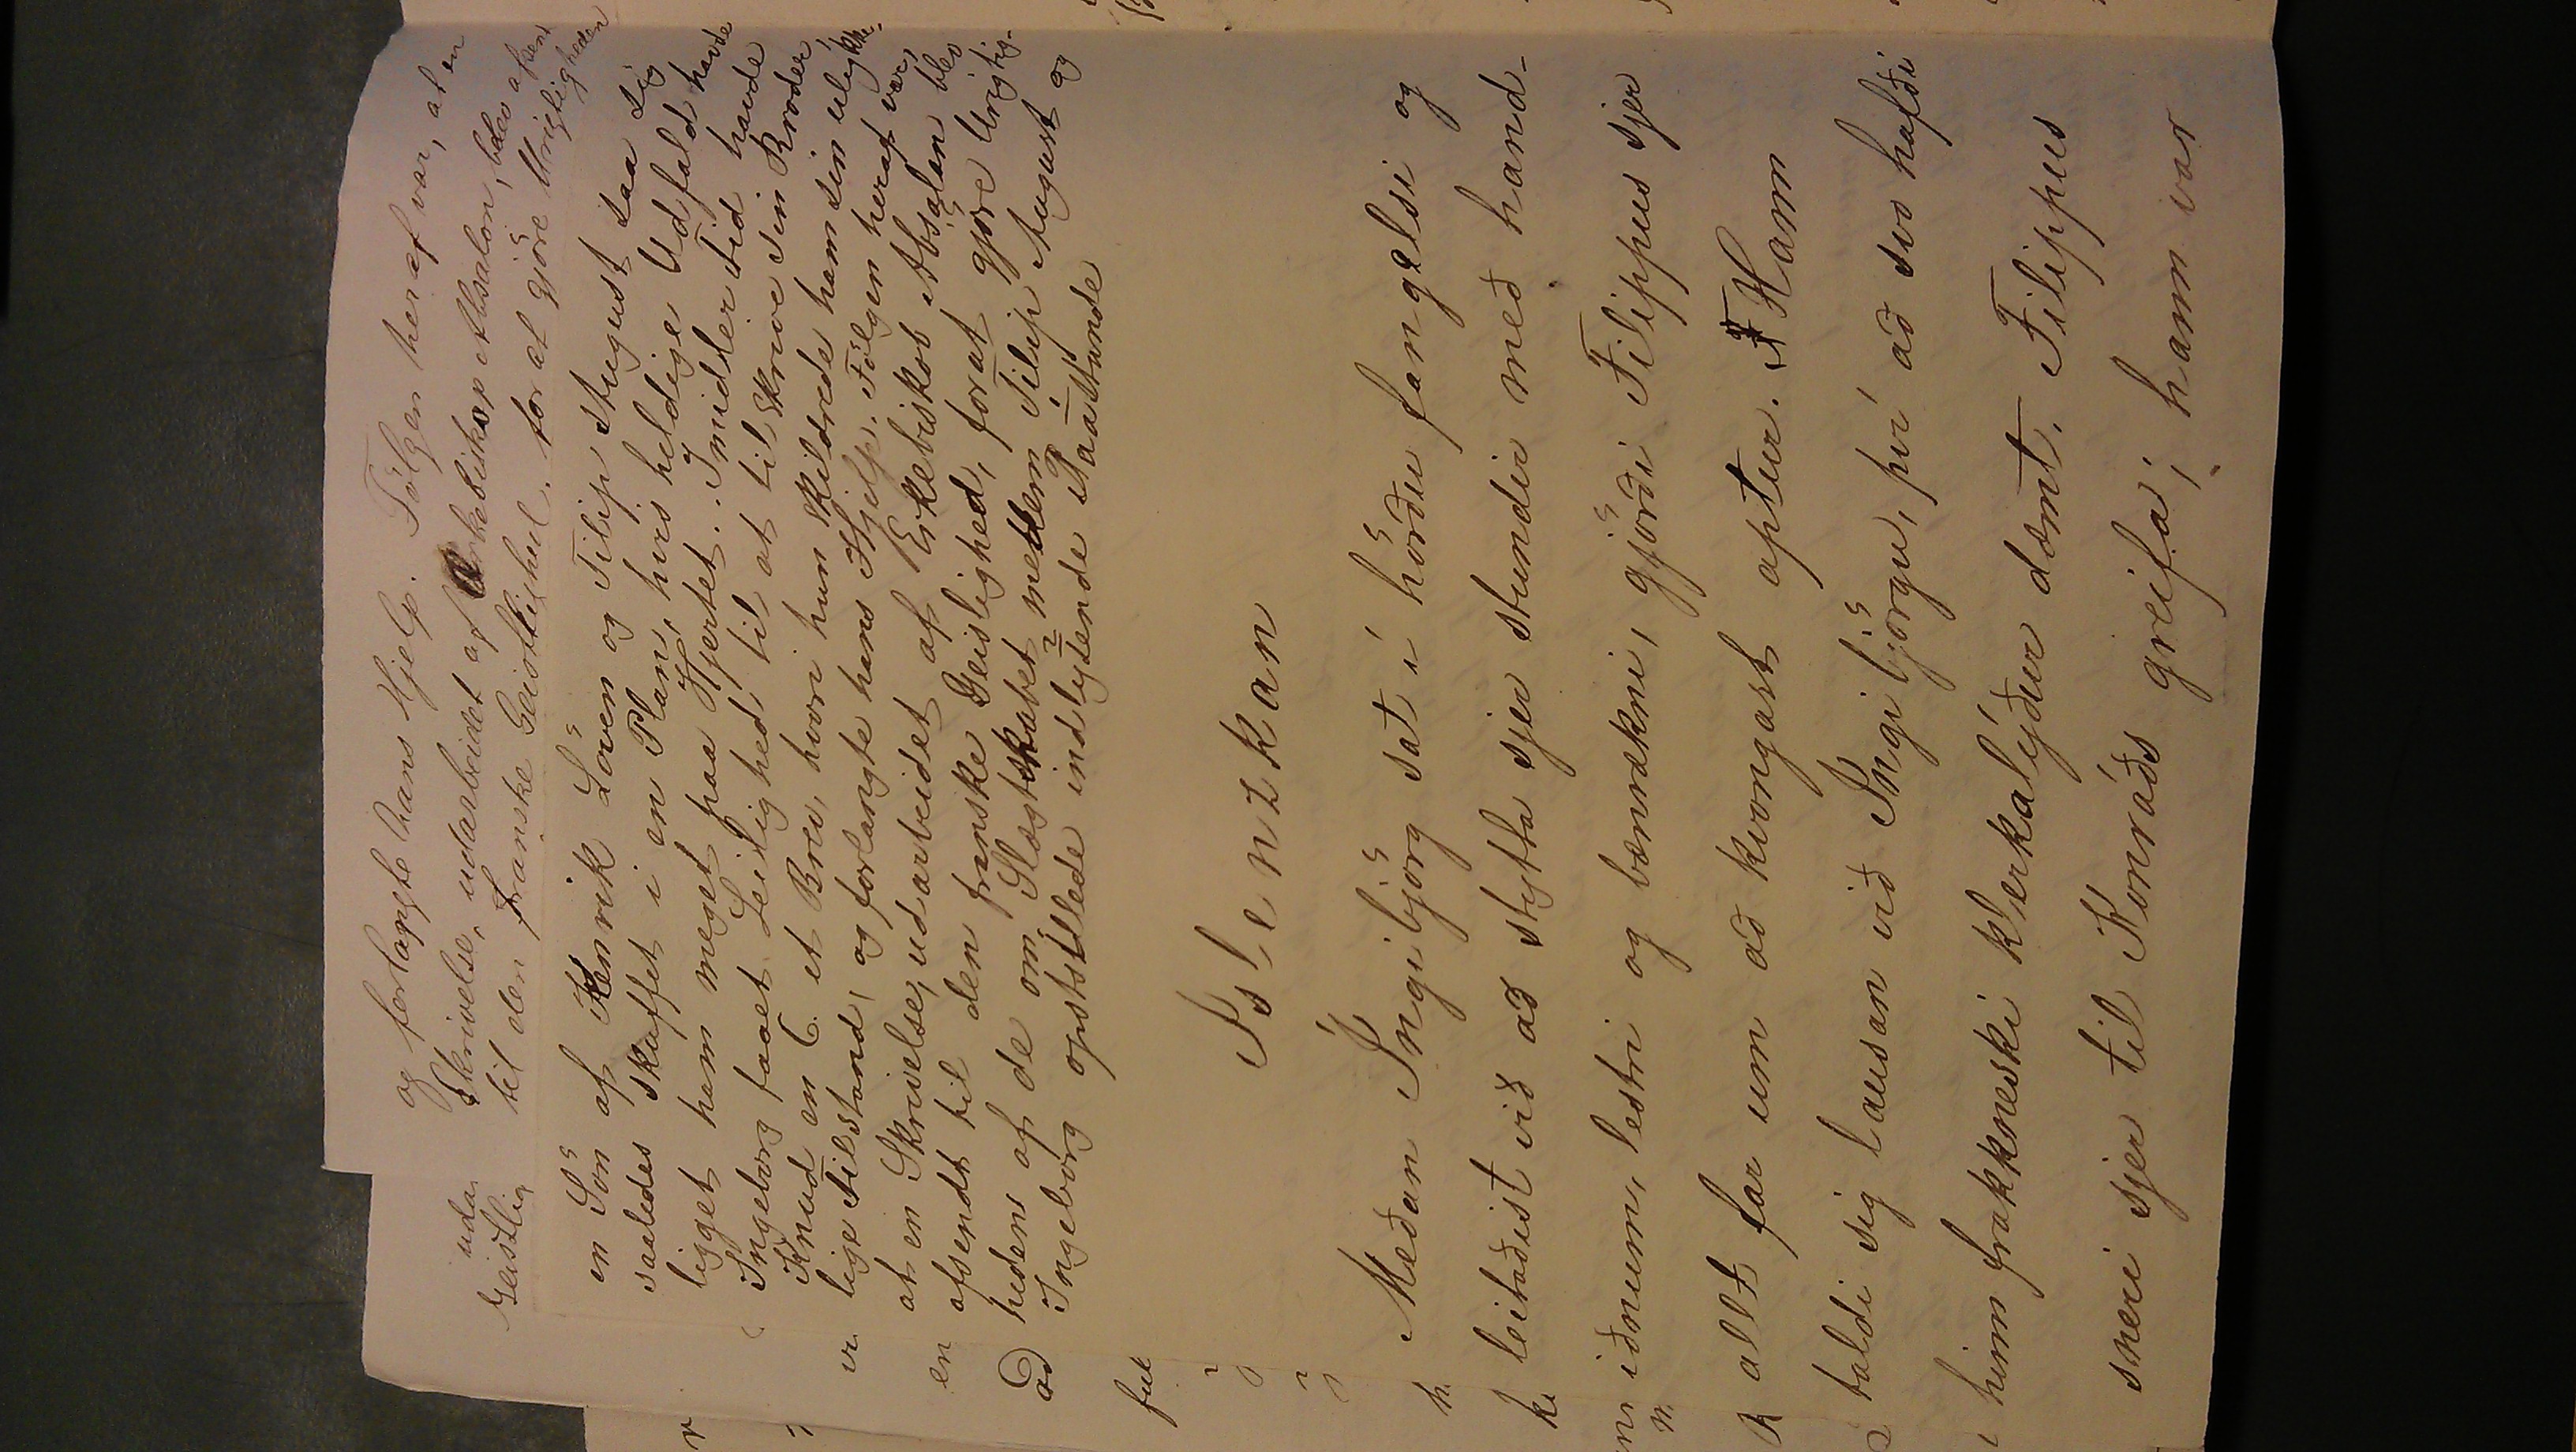 og forlangte hans Hjelp. Fölgen heraf var, at en
Skrivelse, udarbeidet af Ærkebiskop Absalon, blev afsent
til den franske Geistlighed. for at gjöre Urigtigheden
uda
Geistlig
en Sön af Henrik Löven og Filip August saa sig
saaledes skuffet i en Plan, hvis heldige Udfald havde
ligget ham meget paa Hjertet. Imidlertid havde
Ingeborg faaet Leilighed til at tilskrive sin Broder
Knud en 6. et Brev, hvori hun skildrede ham sin ulykke-
lige Tilstand, og forlangte hans Hjelp. Fölgen heraf var,
at en Skrivelse, udarbeidet af Erkebiskob Absalon blev
afsendt til den franske Geislighed, forat gjöre Urigtig-
heden af de om Slægtskabet mellem Filip August og
Ingeborg opstillede indlydende Paastande
Islenzkan
Meðan Ingibjörg sat í hörðu fangelsi og
leitaðist við að stytta sjer stundir með hand-
iðnum, lestri og bænrækni, gjörði Filippus sjer
allt far um að kvongast aptur. Hann
taldi sig lausan við Ingibjörgu, því að svo hafði
hinn frakkneski klerkalýður dæmt. Filippus
sneri sjer til Konráðs greifa; hann var